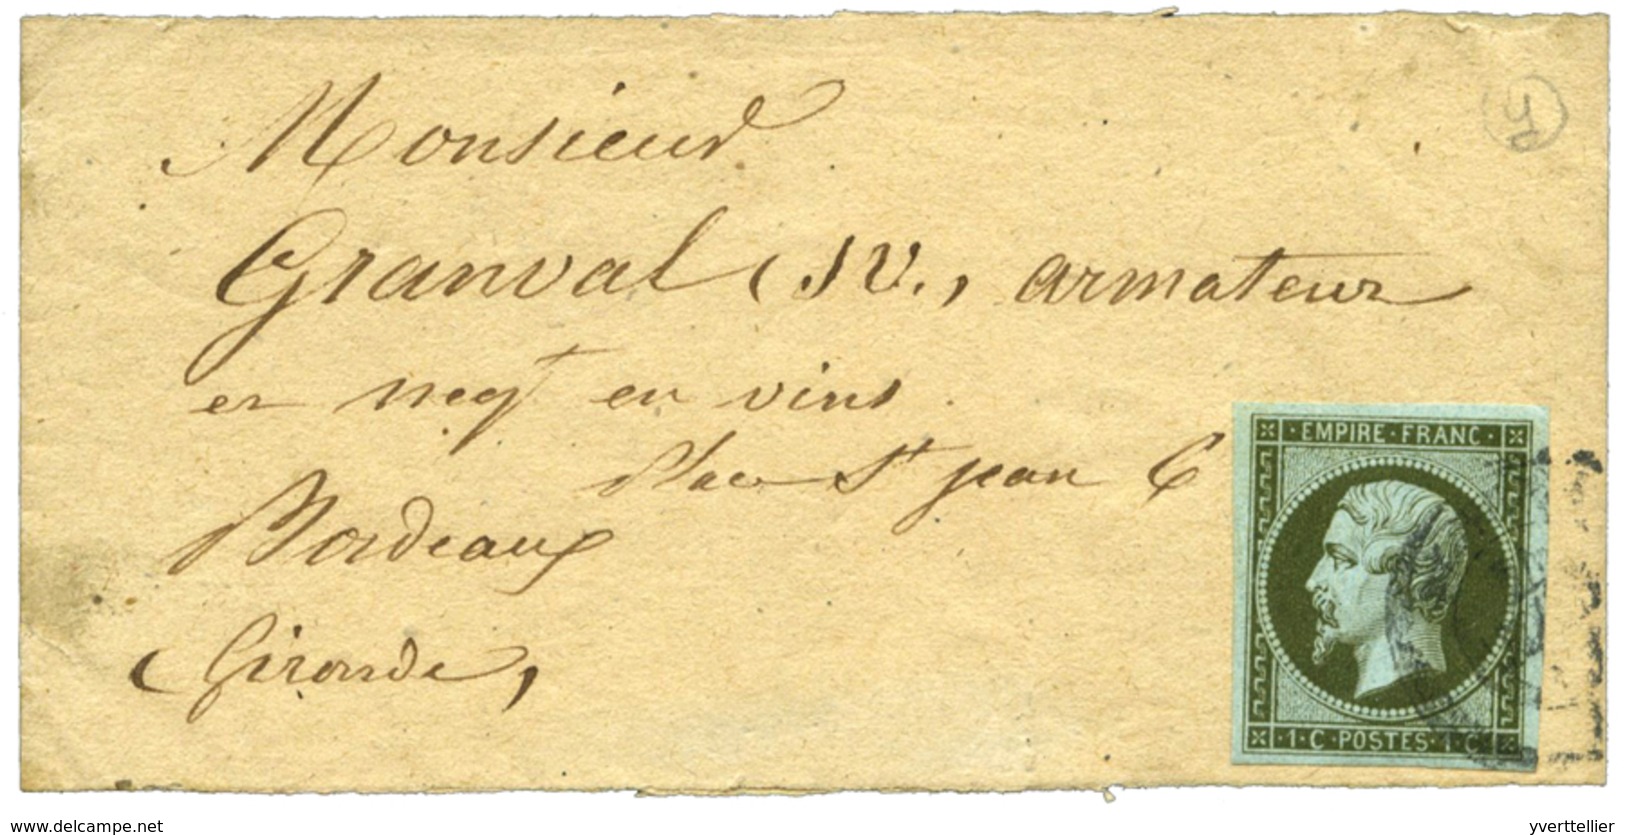 Monsieur
Granval (SV., armateur
et negt en vins
Place St jean 6
Bordeaux
(Gironde,
EMPIRE·FRANC·
·1·C·POSTES·1·C·
www.delcampe.net
yverttellier